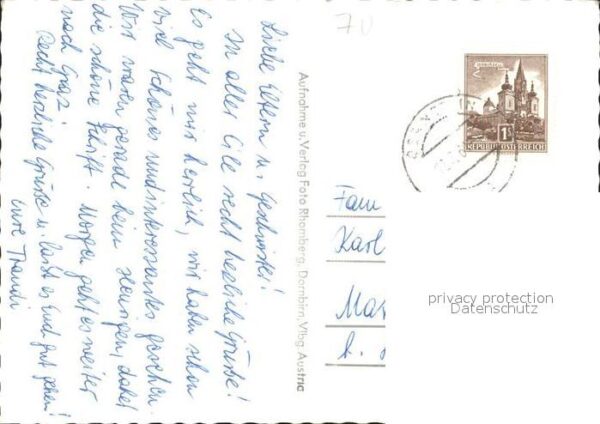 Liebe Eltern u. Geschwister!
In aller Eile recht herzliche Grüsse!
Es geht mir herrlich, wir haben schon
viel Schönes und interessantes gesehen.
Wir waren gerade beim Heurigen, daher
die schöne Schrift. Morgen geht es weiter
nach Graz.
Recht herzliche Grüsse u. lasst es Euch gut gehen!
eure Traudi
Aufnahme u. Verlag Foto Rhomberg, Dornbirn, Vlbg. Austria
70
1 S
REPUBLIK ÖSTERREICH
Fam
Karl
Mar
privacy protection
Datenschutz